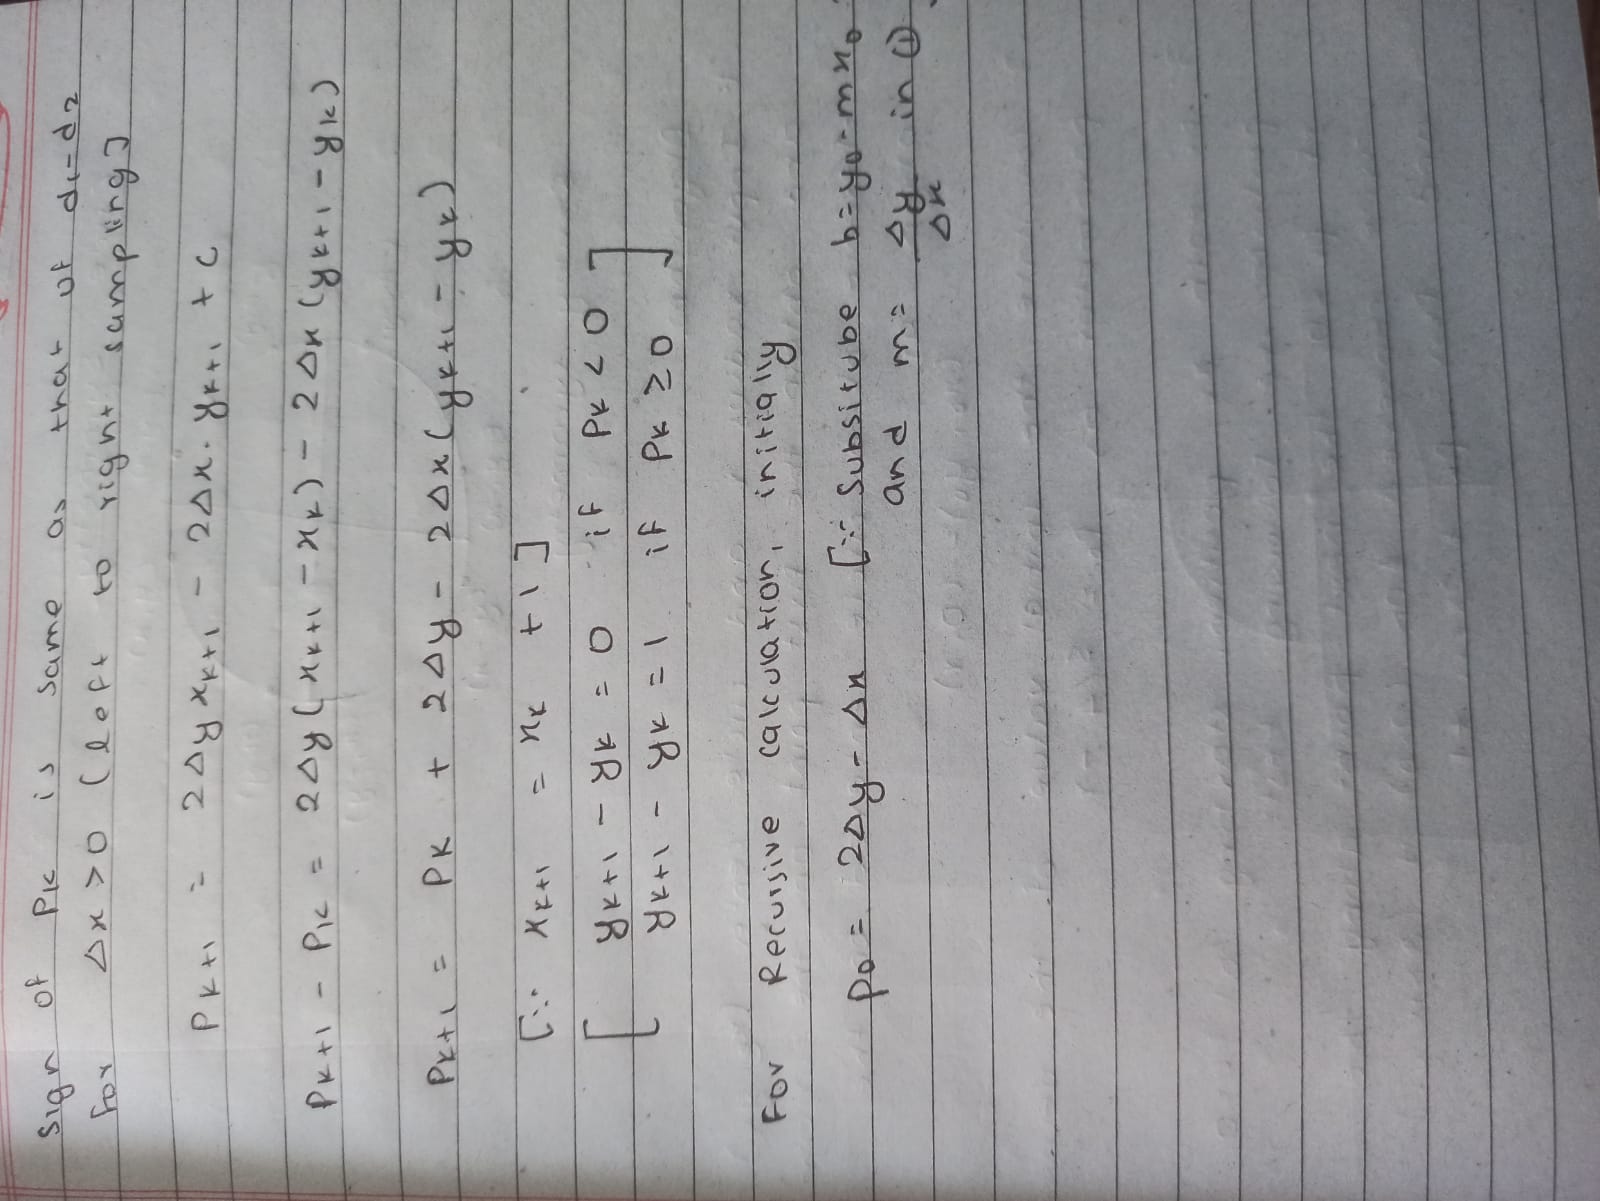 Sign of Pk is same as that of d1-d2
for Δx > 0 (left to right sampling]
Pk+1 = 2Δy xk+1 - 2Δx. yk+1 + c
Pk+1 - Pk = 2Δy (xk+1 - xk) - 2Δx (yk+1 - yk)
Pk+1 = Pk + 2Δy - 2Δx (yk+1 - yk)
[∵ xk+1 = xk +1]
[yk+1 - yk = 0 if Pk < 0]
[yk+1 - yk = 1 if Pk ≥ 0]
For Recursive calculation, initially
Po = 2Δy - Δx [∵ Subsitube b = yo - mxo
and m = Δy/Δx in ①